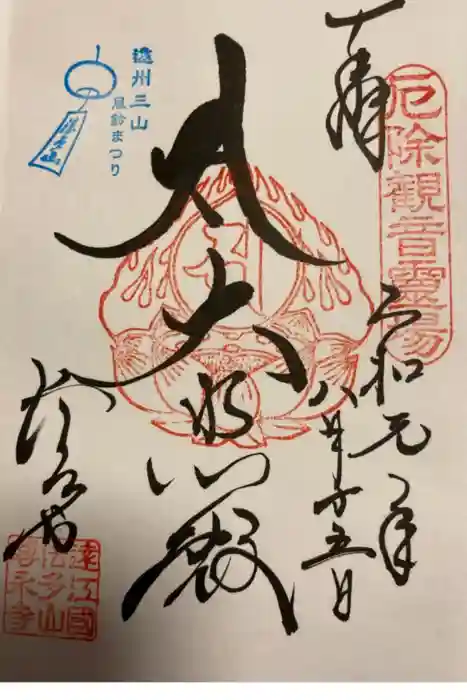 奉拝
厄除観音靈場
令和元年
八月十五日
大悲殿
遠州三山
風鈴まつり
法多山
法多山
遠江國
法多山
尊永寺